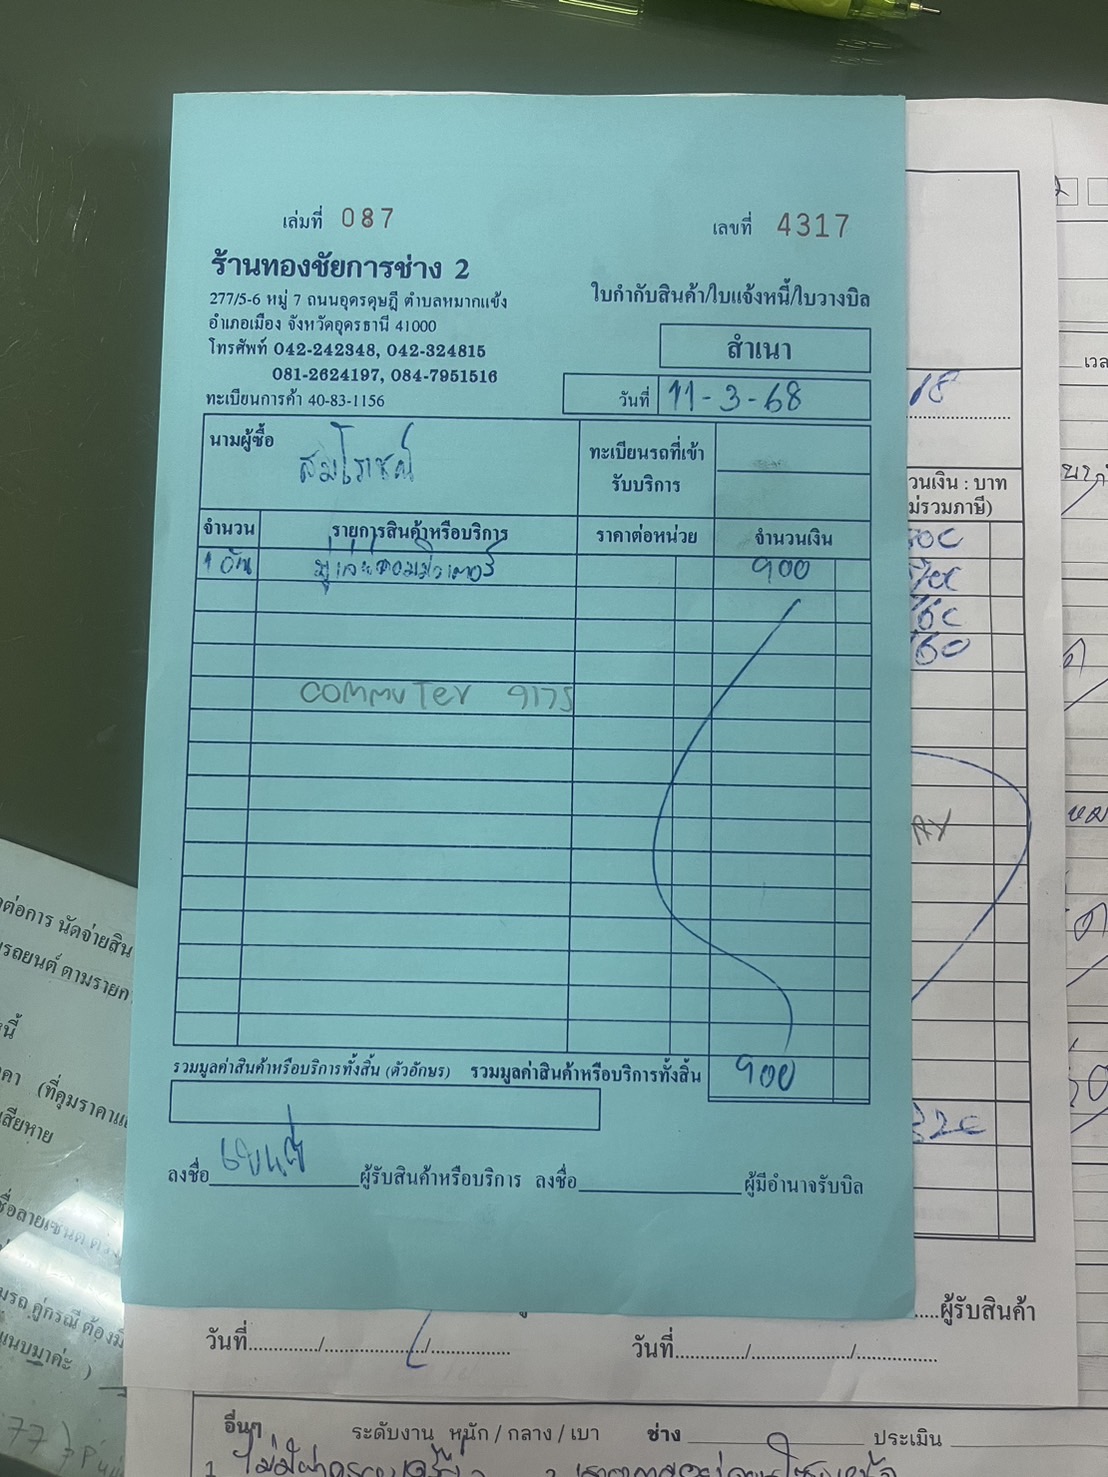 เล่มที่ 087
เลขที่ 4317
ร้านทองชัยการช่าง 2
277/5-6 หมู่ 7 ถนนอุดรดุษฎี ตำบลหมากแข้ง
อำเภอเมือง จังหวัดอุดรธานี 41000
โทรศัพท์ 042-242348, 042-324815
081-2624197, 084-7951516
ทะเบียนการค้า 40-83-1156
ใบกำกับสินค้า/ใบแจ้งหนี้/ใบวางบิล
สำเนา
วันที่ 11-3-68
นามผู้ซื้อ
ทะเบียนรถที่เข้า
รับบริการ
จำนวน รายการสินค้าหรือบริการ ราคาต่อหน่วย จำนวนเงิน
1 อัน มู่เล่ย์คอมมิวเตอร์ 900
COMMUTER
รวมมูลค่าสินค้าหรือบริการทั้งสิ้น (ตัวอักษร) รวมมูลค่าสินค้าหรือบริการทั้งสิ้น 900
ลงชื่อ ผู้รับสินค้าหรือบริการ ลงชื่อ ผู้มีอำนาจรับบิล
วนเงิน : บาท
ม่รวมภาษี)
ต่อการ นัดจ่ายสิน
รถยนต์ ตามรายก
นี้
คา (ที่คุมราคาแ
เสียหาย
ชื่อลายเซนต์
มรถ คู่กรณี ต้องมี
แนบมาค่ะ )
77
ผู้รับสินค้า
วันที่............/................/............... วันที่............/................/...............
อื่นๆ ระดับงาน หนัก / กลาง / เบา ช่าง ประเมิน